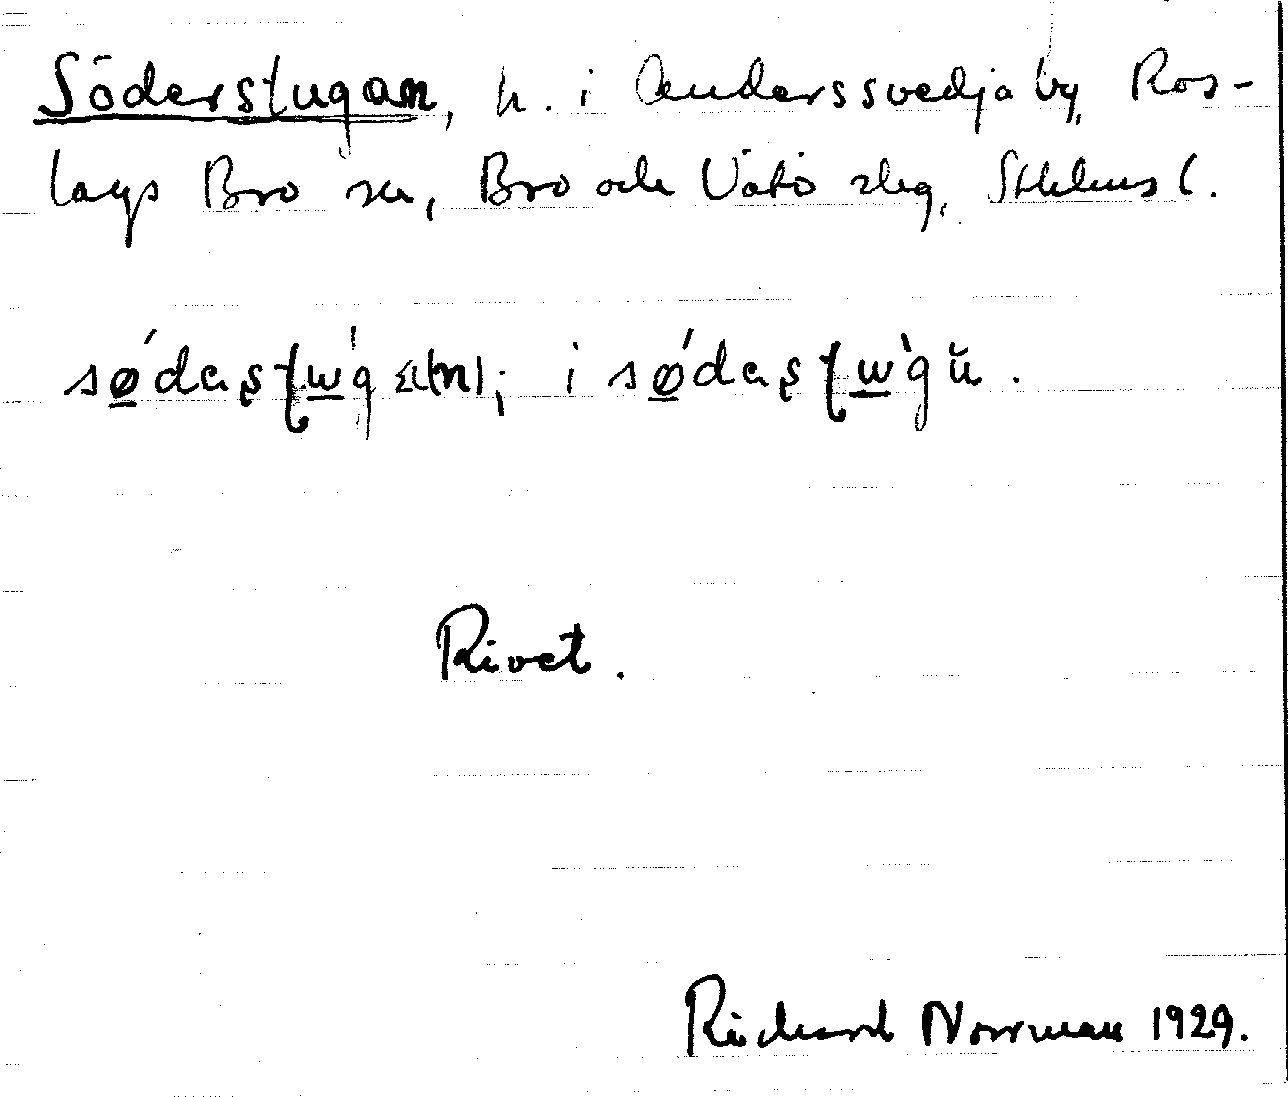 Söderstugan, h. i Anderssvedja by, Ros-
lags Bro sn, Bro och Vätö slg, Sthlms l.
sǿdaşƫẁgα(n); i sǿdaşƫẁgŭ.
Rivet.
Richard Norrman 1929.